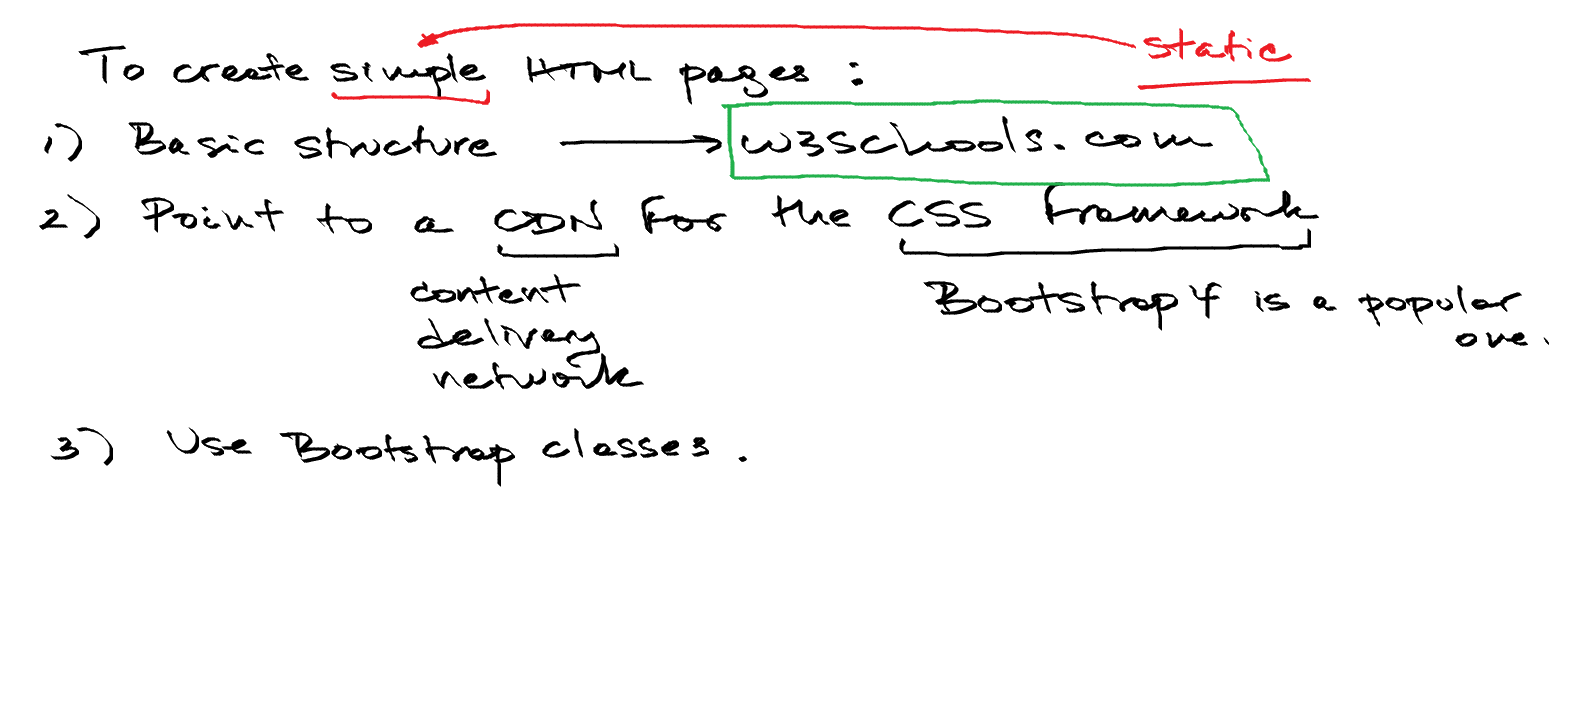 static
To create simple HTML pages :
1) Basic structure → w3schools.com
2) Point to a CDN for the CSS framework
content
delivery
network
Bootstrap 4 is a popular
one.
3) Use Bootstrap classes.